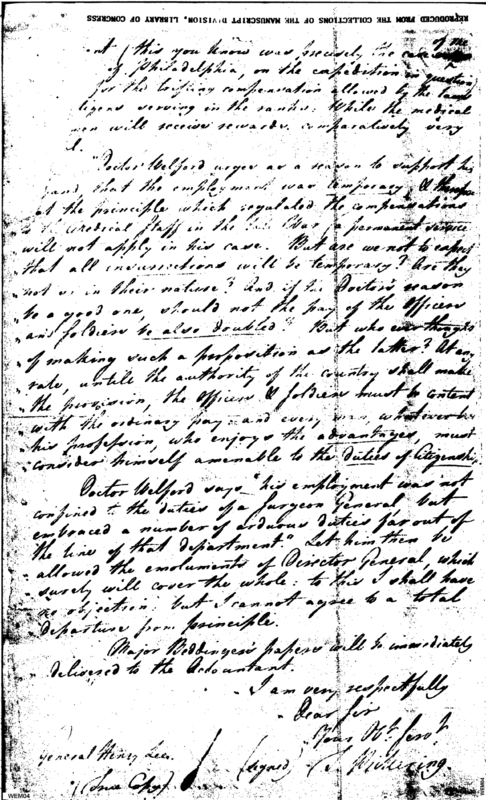 REPRODUCED FROM THE COLLECTIONS OF THE MANUSCRIPT DIVISION, LIBRARY OF CONGRESS
ent (this you know was precisely the case
of Philadelphia, on the expedition in question
for the trifling compensation allowed by the laws
serving in the ranks: While the medical
men will receive rewards, comparatively very
"Doctor Welford urges as a reason to support his
and, that the employment was temporary, &
at the principle which regulated the compensations
Medical Staff in the War, a permanent service
will not apply in his case. But are we not to expect
that all insurrections will be temporary? Are they
not so in their nature? And if the Doctor's reason
be a good one, should not the pay of the Officers
and soldiers be also doubled? But who ever thought
of making such a proposition as the latter? At any
rate, untill the authority of the country shall make
the provision, the Officers & soldiers must be content
with the ordinary pay—and every man, whatever be
his profession, who enjoys the advantages, must
consider himself amenable to the duties of Citizenship.
Doctor Welford says "his employment was not
confined to the duties of a Surgeon General, but
embraced a number of arduous duties far out of
the line of that department." Let him then be
allowed the emoluments of Director General, which
surely will cover the whole: to this I shall have
no objection: but I cannot agree to a total
departure from principle.
Major Beddinger's papers will be immediately
delivered to the Accountant.
I am very respectfully
Dear Sir
Your Obt. Servt
(signed) T. Pickering.
General Henry Lee.
(True Copy)
WEM04